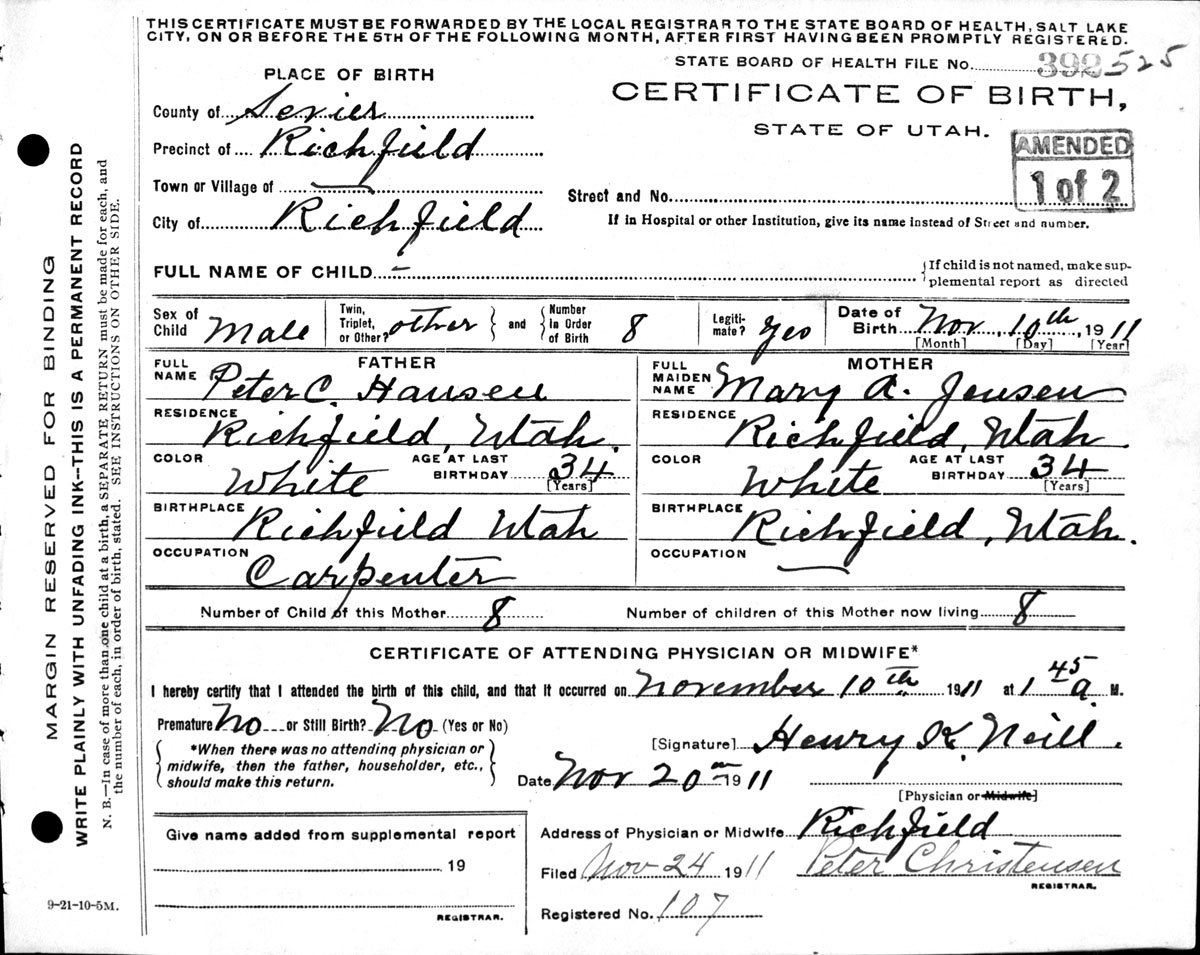 THIS CERTIFICATE MUST BE FORWARDED BY THE LOCAL REGISTRAR TO THE STATE BOARD OF HEALTH, SALT LAKE
CITY, ON OR BEFORE THE 5TH OF THE FOLLOWING MONTH, AFTER FIRST HAVING BEEN PROMPTLY REGISTERED.
STATE BOARD OF HEALTH FILE No. 392525
PLACE OF BIRTH
CERTIFICATE OF BIRTH,
STATE OF UTAH.
AMENDED
1 of 2
County of Sevier
Precinct of Richfield
Town or Village of —
Street and No.
City of Richfield
If in Hospital or other Institution, give its name instead of Street and number.
FULL NAME OF CHILD –
{If child is not named, make sup-
plemental report as directed
Sex of Child Male
Twin, Triplet, or Other? other } and { Number in Order of Birth 8
Legiti-mate? Yes
Date of Birth Nov. 10th, 1911
[Month] [Day] [Year]
FATHER
FULL NAME Peter C. Hansen
RESIDENCE
Richfield, Utah.
COLOR White AGE AT LAST BIRTHDAY 34
[Years]
BIRTHPLACE
Richfield Utah
OCCUPATION
Carpenter
MOTHER
FULL MAIDEN NAME Mary A. Jensen
RESIDENCE
Richfield, Utah.
COLOR White AGE AT LAST BIRTHDAY 34
[Years]
BIRTHPLACE
Richfield, Utah.
OCCUPATION
—
Number of Child of this Mother 8 Number of children of this Mother now living 8
CERTIFICATE OF ATTENDING PHYSICIAN OR MIDWIFE*
I hereby certify that I attended the birth of this child, and that it occurred on November 10th 1911 at 1 45 a. M.
Premature No or Still Birth? No (Yes or No)
{ *When there was no attending physician or
midwife, then the father, householder, etc.,
should make this return. }
[Signature] Henry K. Neill.
Date Nov 20 1911
[Physician or Midwife]
Give name added from supplemental report
19
REGISTRAR.
Address of Physician or Midwife Richfield
Filed Nov 24 1911 Peter Christensen
REGISTRAR.
Registered No. 107
9-21-10-5M.
MARGIN RESERVED FOR BINDING
WRITE PLAINLY WITH UNFADING INK—THIS IS A PERMANENT RECORD
N. B.—In case of more than one child at a birth, a SEPARATE RETURN must be made for each, and
the number of each, in order of birth, stated. SEE INSTRUCTIONS ON OTHER SIDE.